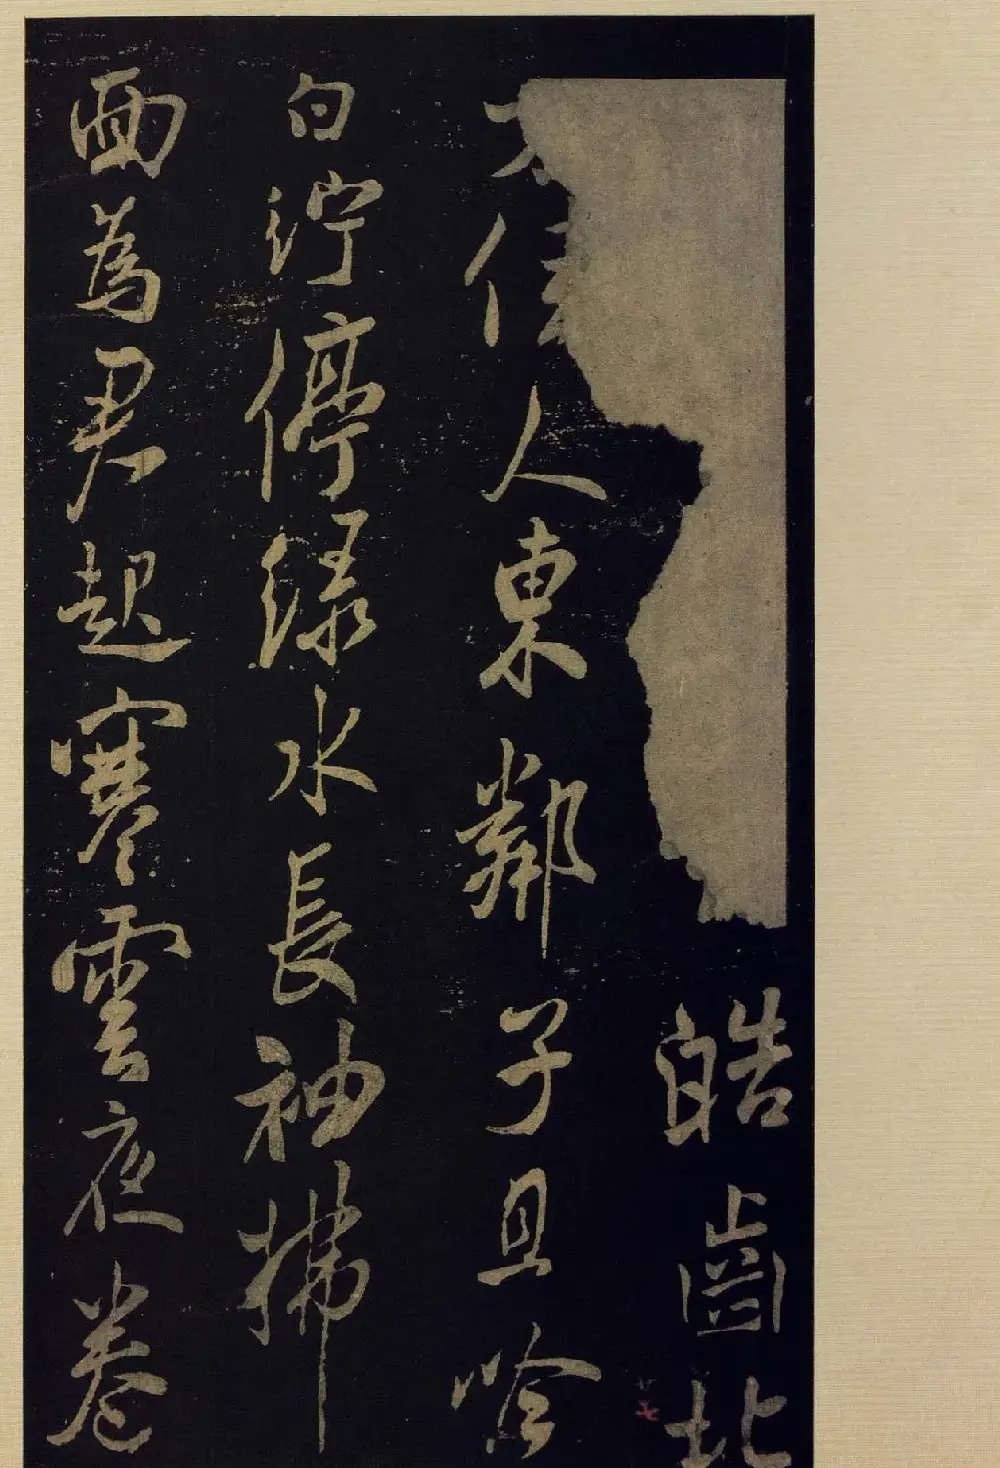 皓齒北
佳人東鄰子且吟
白紵停綠水長袖拂
面為君起寒雲夜卷